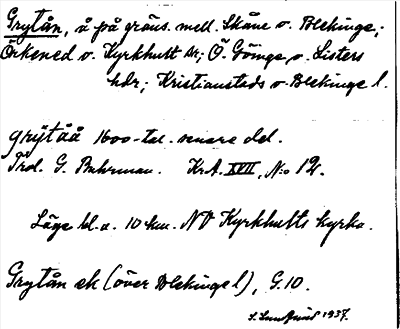 Grytån, å på gräns. mell. Skåne o. Blekinge;
Örkened o. Kyrkhult sk; Ö. Göinge o. Listers
hdr; Kristianstads o. Blekinge l.
grÿtåå 1600-tal. senare del.
Trol. G. Buhrman. Kr.A. XVII, N:o 12.
Läge bl.a. 10 km. NV Kyrkhults kyrka.
Grytån ek (över Blekinge l), G.10.
1937.